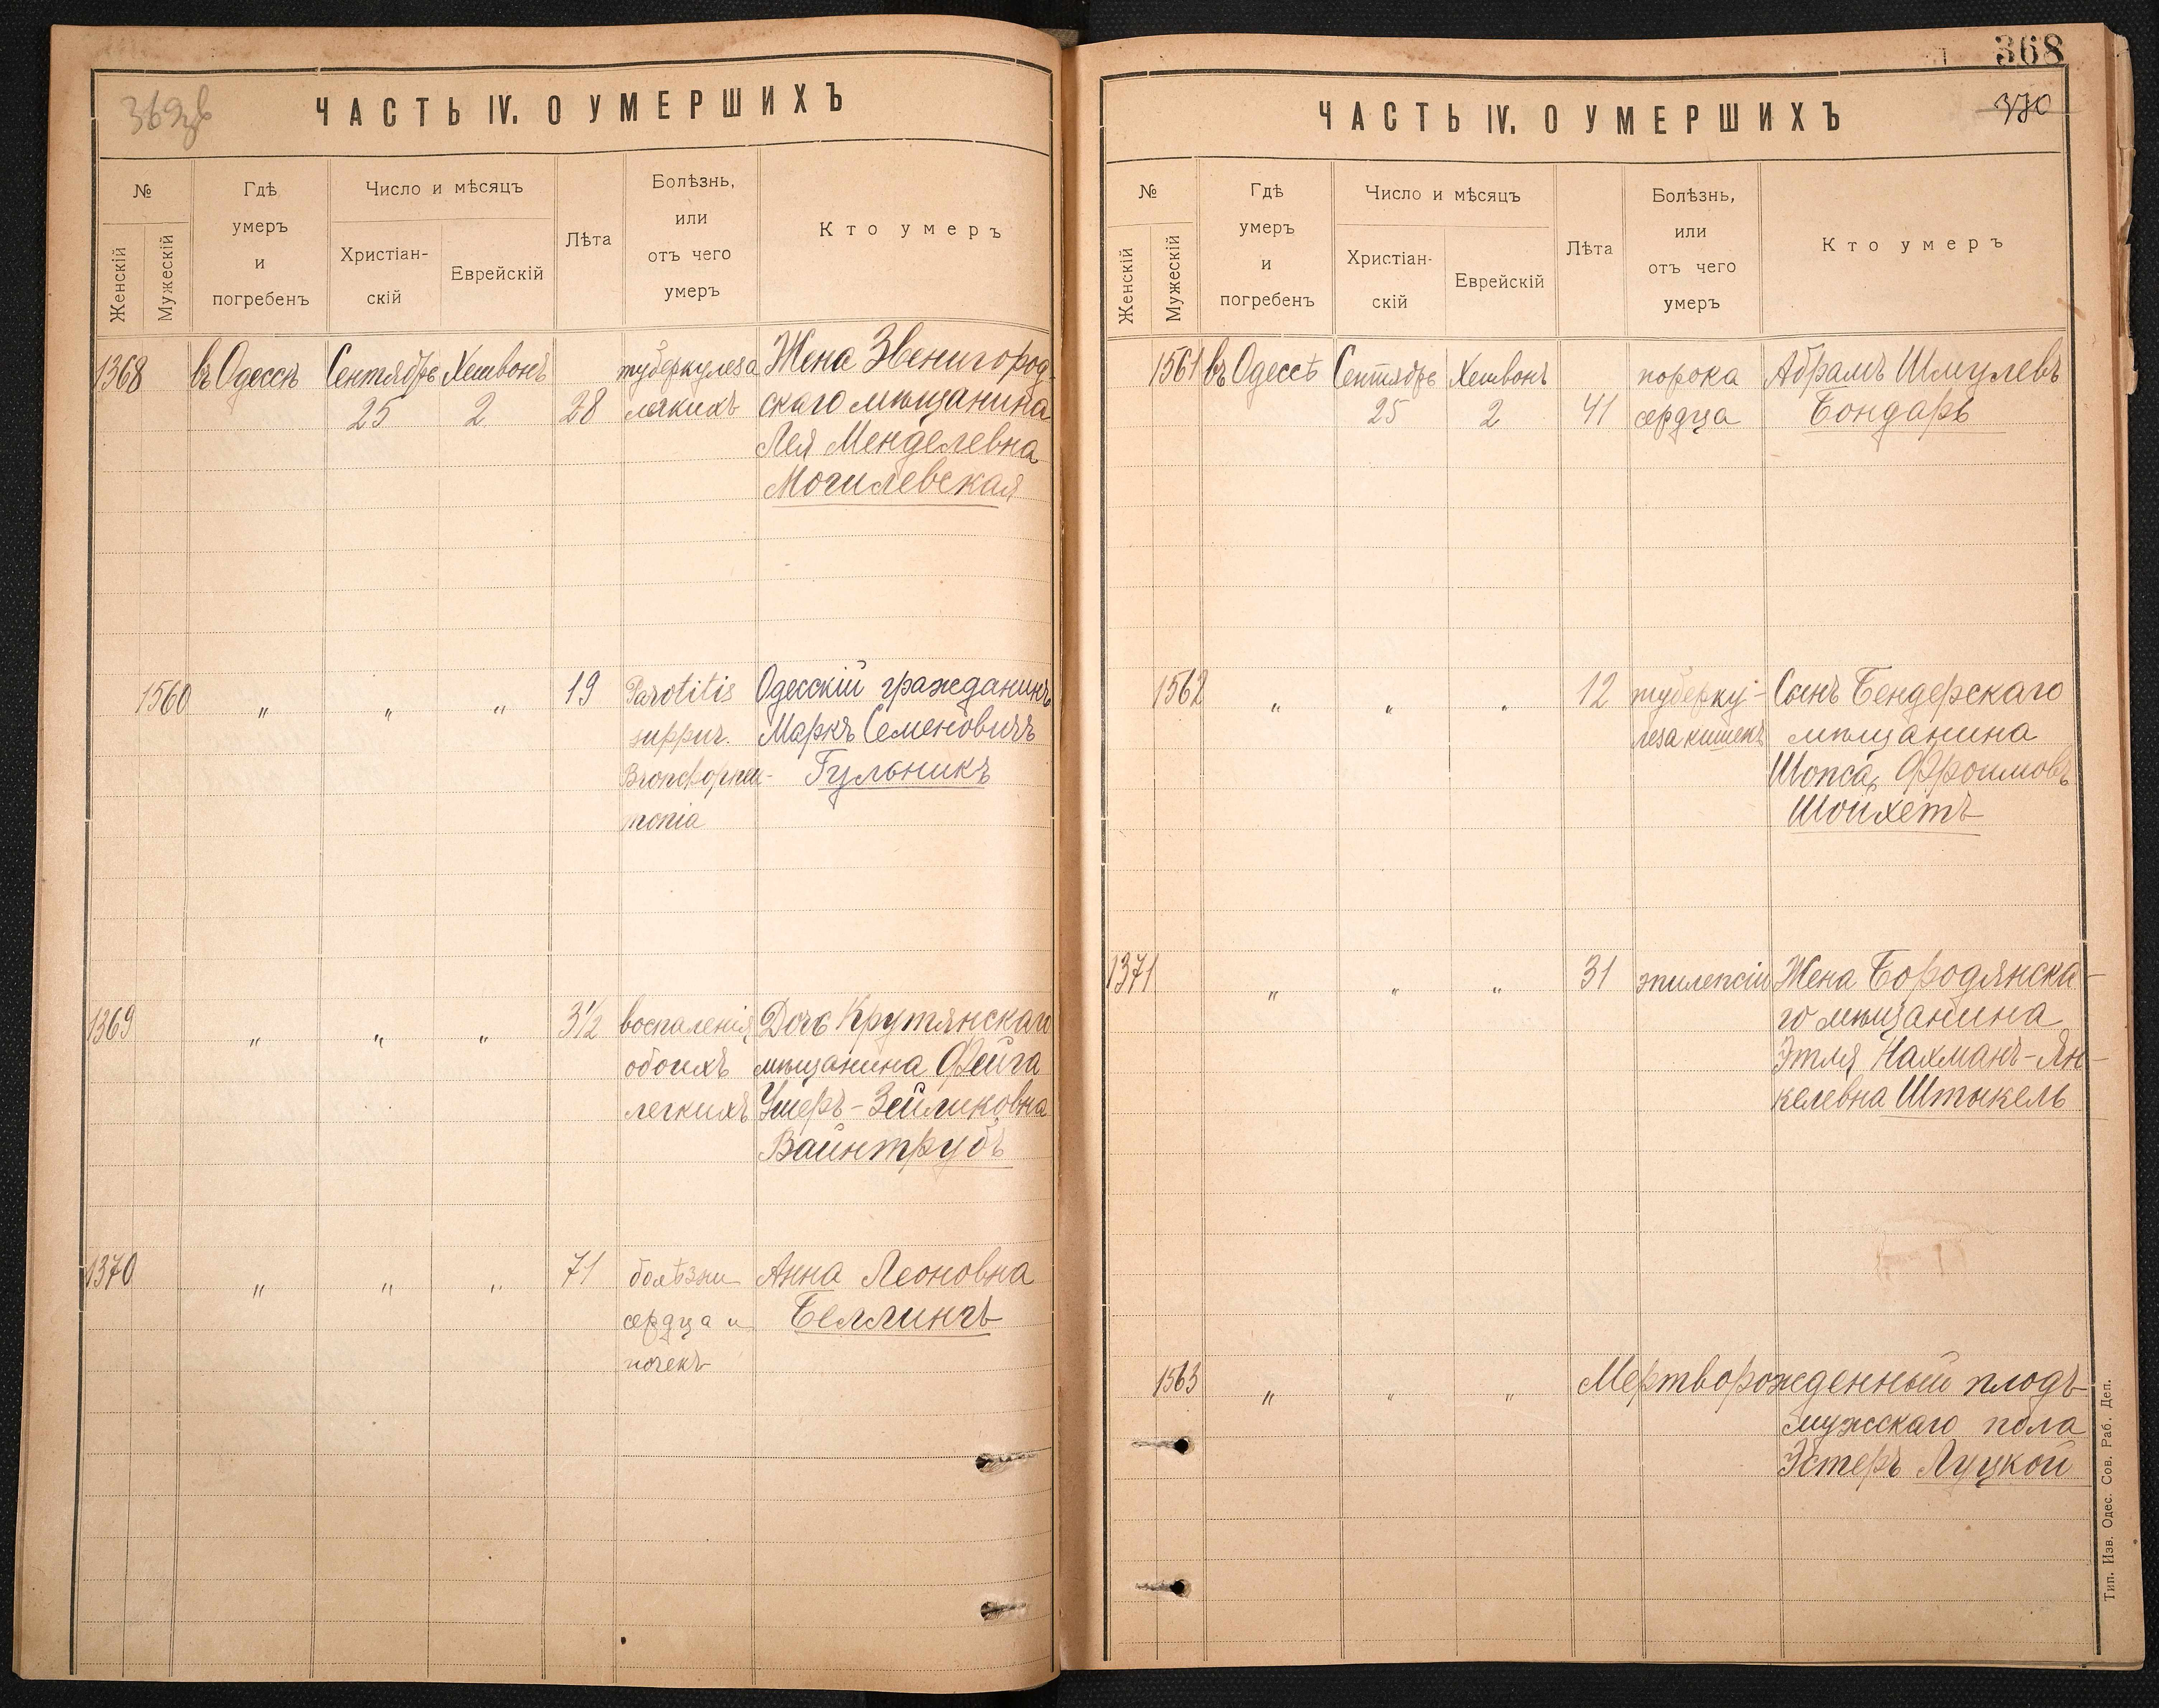 369зв
ЧАСТЬ IV. О УМЕРШИХЪ
№
Женскій
Мужескій
Гдѣ
умеръ
и
погребенъ
Число и мѣсяцъ
Христіан-
скій
Еврейскій
Лѣта
Болѣзнь,
или
отъ чего
умеръ
Кто умеръ
1368 въ Одессѣ Сентябрь Хешвонъ туберкулеза Жена Звенигород-
25 2 28 легкихъ скаго мѣщанина
Лея Менделевна
Могилевская
1560 " " " 19 Parotitis Одесскій гражданинъ
suppur. Маркъ Семеновичъ
Bronchopneu- Гульникъ
monia
1369 " " " 3½ воспаленія Дочь Крутянскаго
обоихъ мѣщанина Фейга
легкихъ Ушеръ-Зейликовна
Вайнтрубъ
1370 " " " 71 болѣзни Анна Леоновна
сердца и Беллингъ
почекъ
368
370
ЧАСТЬ IV. О УМЕРШИХЪ
№
Женскій
Мужескій
Гдѣ
умеръ
и
погребенъ
Число и мѣсяцъ
Христіан-
скій
Еврейскій
Лѣта
Болѣзнь,
или
отъ чего
умеръ
Кто умеръ
1561 въ Одессѣ Сентябрь Хешвонъ порока Абрамъ Шмулевъ
25 2 41 сердца Бондарь
1562 " " " 12 туберку- Сынъ Бендерскаго
леза кишекъ мѣщанина
Шопса Фроимовъ
Шойхетъ
1371 " " " 31 эпилепсіи Жена Бородянска-
го мѣщанина
Этля Нахманъ-Ян-
келевна Штыкель
1563 " " " Мертворожденный плодъ
мужскаго пола
Эстеръ Луцкой
Тип. Изв. Одес. Сов. Раб. Деп.